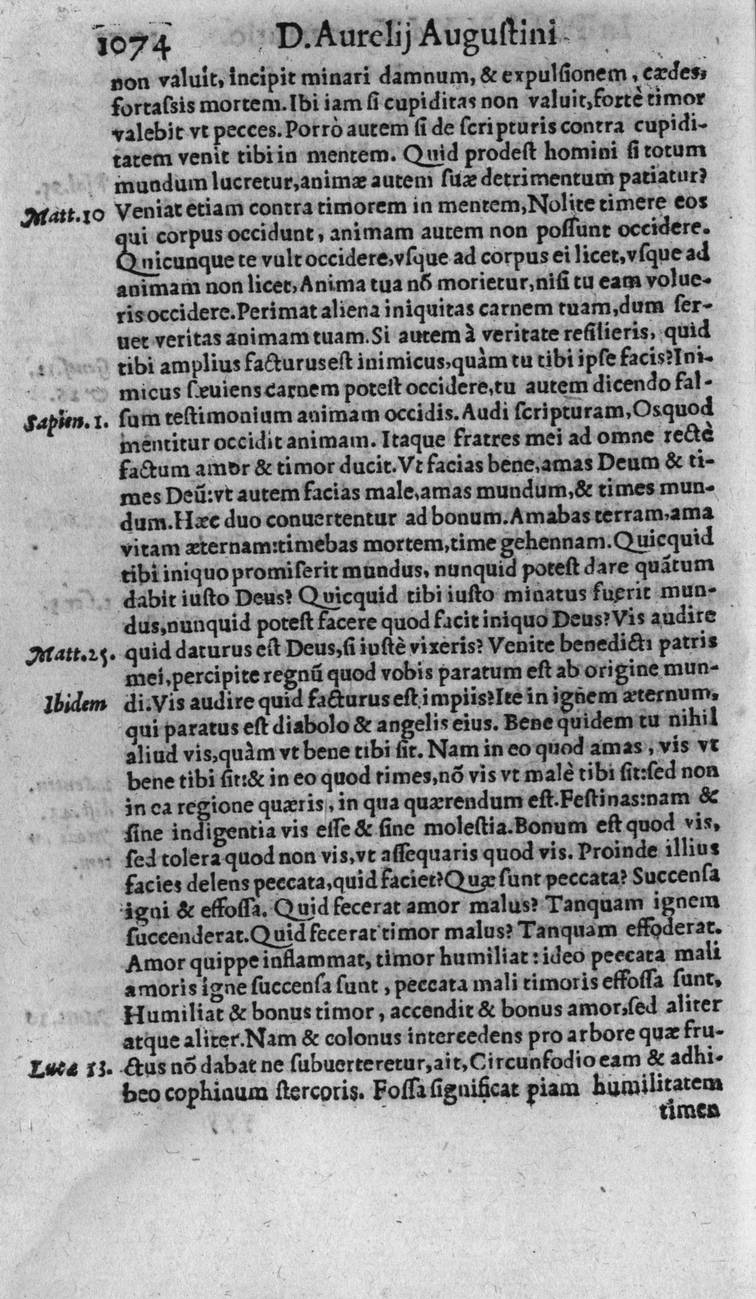 1074 D. Aurelij Auguſtini
non valuit, incipit minari damnum, & expulſionem, cædes,
fortaſsis mortem. Ibi iam ſi cupiditas non valuit, fortè timor
valebit vt pecces. Porrò autem ſi de ſcripturis contra cupidi-
tatem venit tibi in mentem. Quid prodeſt homini ſi totum
mundum lucretur, animæ autem ſuæ detrimentum patiatur?
Matt. 10 Veniat etiam contra timorem in mentem, Nolite timere eos
qui corpus occidunt, animam autem non poſſunt occidere.
Quicunque te vult occidere, vſque ad corpus ei licet, vſque ad
animam non licet, Anima tua nõ morietur, niſi tu eam volue-
ris occidere. Perimat aliena iniquitas carnem tuam, dum ſer-
uet veritas animam tuam. Si autem à veritate reſilieris, quid
tibi amplius facturus eſt inimicus, quàm tu tibi ipſe facis? Ini-
micus ſæuiens carnem poteſt occidere, tu autem dicendo fal-
Sapien. 1. ſum teſtimonium animam occidis. Audi ſcripturam, Os quod
mentitur occidit animam. Itaque fratres mei ad omne rectè
factum amor & timor ducit. Vt facias bene, amas Deum & ti-
mes Deũ: vt autem facias male, amas mundum, & times mun-
dum. Hæc duo conuertentur ad bonum. Amabas terram, ama
vitam æternam: timebas mortem, time gehennam. Quicquid
tibi iniquo promiſerit mundus, nunquid poteſt dare quãtum
dabit iuſto Deus? Quicquid tibi iuſto minatus fuerit mun-
dus, nunquid poteſt facere quod facit iniquo Deus? Vis audire
Matt. 25. quid daturus eſt Deus, ſi iuſtè vixeris? Venite benedicti patris
mei, percipite regnũ quod vobis paratum eſt ab origine mun-
Ibidem di. Vis audire quid facturus eſt impiis? Ite in ignem æternum,
qui paratus eſt diabolo & angelis eius. Bene quidem tu nihil
aliud vis, quàm vt bene tibi ſit. Nam in eo quod amas, vis vt
bene tibi ſit: & in eo quod times, nõ vis vt malè tibi ſit: ſed non
in ea regione quæris, in qua quærendum eſt. Feſtinas: nam &
ſine indigentia vis eſſe & ſine moleſtia. Bonum eſt quod vis,
ſed tolera quod non vis, vt aſſequaris quod vis. Proinde illius
facies delens peccata, quid faciet? Quæ ſunt peccata? Succenſa
igni & effoſſa. Quid fecerat amor malus? Tanquam ignem
ſuccenderat. Quid fecerat timor malus? Tanquam effoderat.
Amor quippe inflammat, timor humiliat: ideo peccata mali
amoris igne ſuccenſa ſunt, peccata mali timoris effoſſa ſunt,
Humiliat & bonus timor, accendit & bonus amor, ſed aliter
atque aliter. Nam & colonus intercedens pro arbore quæ fru-
Luca 13. ctus nõ dabat ne ſubuerteretur, ait, Circunfodio eam & adhi-
beo cophinum ſtercoris. Foſſa ſignificat piam humilitatem
timen